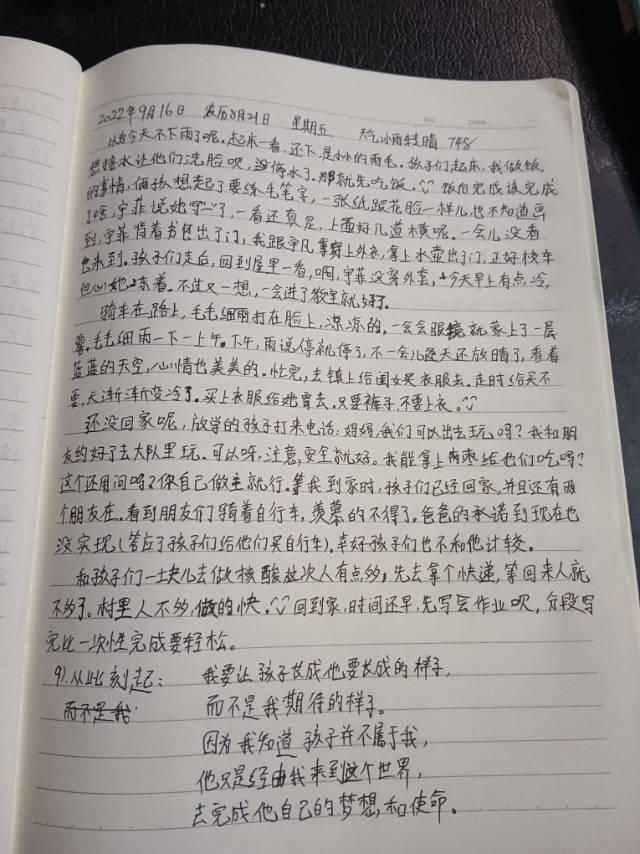 2022年9月16日 农历8月21日 星期五 天气小雨转晴 748
No. Date.:
以为今天不下雨了呢。起床一看,还下,是小小的雨毛。孩子们起床,我做饭,
想接水让他们洗脸呗,没停水了。那就先吃饭。饭后完成该完成
的事情,俩孩想起了要练毛笔字,一张纸跟花脸一样儿,也不知道画
了啥,宇菲说她写了,一看还真是,上面好几道横呢。一会儿没看
到,宇菲背着书包出了门,我跟宇凡拿穿上外衣,拿上水壶出了门,正好校车
也来到。孩子们走后,回到屋里一看,啊,宇菲没穿外套,今天早上有点冷,
担心她冻着。不过又一想,一会进了教室就好了。
骑车在路上,毛毛细雨打在脸上,凉凉的,一会会眼镜就蒙上了一层
雾。毛毛细雨一下一上午。下午,雨说停就停了,不一会儿天还放晴了,看着
蓝蓝的天空,心情也美美的。忙完,去镇上给闺女买衣服去。走时给买不
要,天渐渐变冷了。买上衣服给她留去。只要裤子,不要上衣。
还没回家呢,放学的孩子打来电话:妈妈,我们可以出去玩吗?我和朋
友约好了去大队里玩。可以呀,注意安全就好。我能拿上两枣给他们吃吗?
这个还用问吗?你自己做主就行。等我到家时,孩子们已经回家,并且还有两
个朋友在。看到朋友们骑着自行车,羡慕的不得了,爸爸的承诺到现在也
没实现(答应了孩子们给他们买自行车)。幸好孩子们也不和他计较。
和孩子们一块儿去做核酸,这次人有点多,先去拿个快递,等回来人就
不多了。村里人不多,做的快。回到家,时间还早,先写会作业呗,分段写
完比一次性完成要轻松。
9).从此刻起: 我要让孩子长成他要长成的样子,
而不是我 而不是我期待的样子。
因为我知道孩子并不属于我,
他只是经由我来到这个世界,
去完成他自己的梦想和使命。